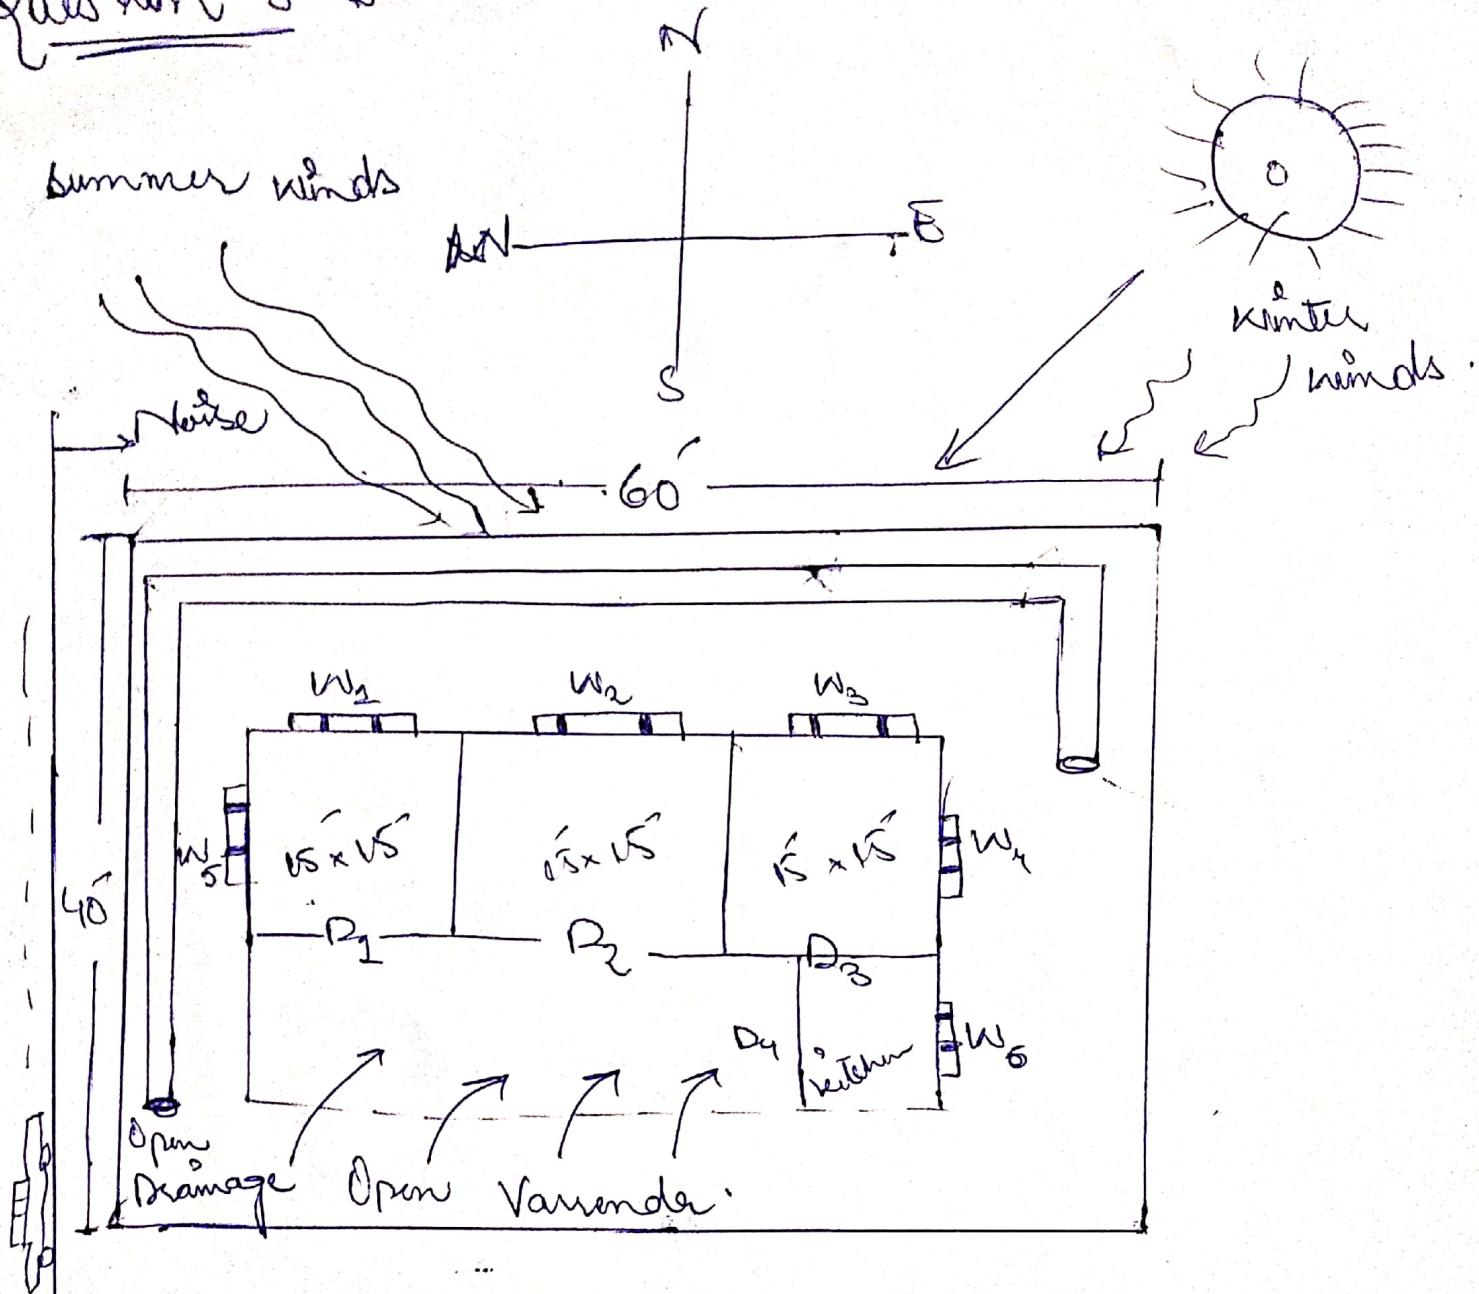 Question 3
N
Summer winds
W
E
winter
winds.
S
Noise
60'
W1
W2
W3
W5
15' x 15'
15' x 15'
15' x 15'
W4
40'
D1
D2
D3
D4
kitchen
W6
Open
Drainage
Open Varrenda.